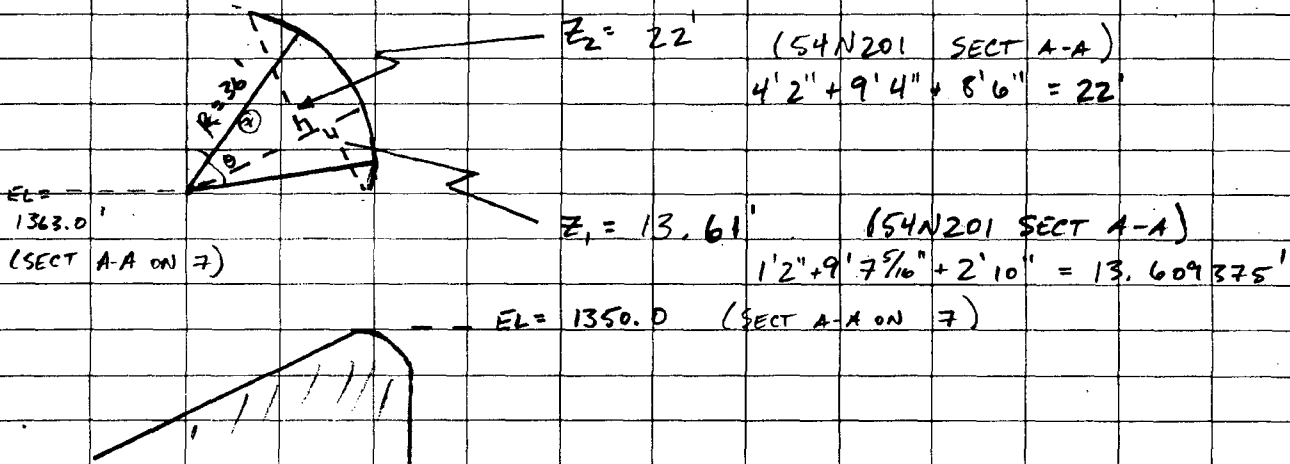 Z₂ = 22' (54N201 SECT A-A)
4'2" + 9'4" + 8'6" = 22'
R=36'
α
h
θ
EL=
1363.0'
(SECT A-A ON 7)
Z₁ = 13.61' (54N201 SECT A-A)
1'2"+9'7 5/16"+2'10" = 13.609375'
EL= 1350.0 (SECT A-A ON 7)